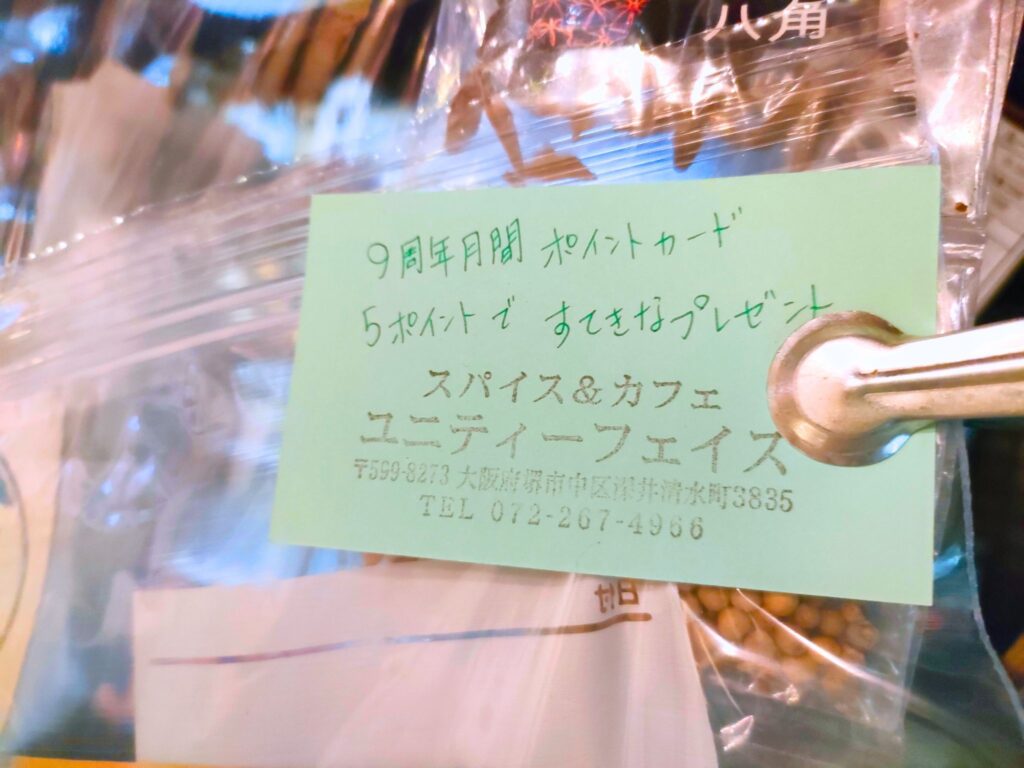 八角
9周年月間 ポイントカード
5ポイントで すてきなプレゼント
スパイス&カフェ
ユニティーフェイス
〒599-8273 大阪府堺市中区深井清水町3835
TEL 072-267-4966
日付